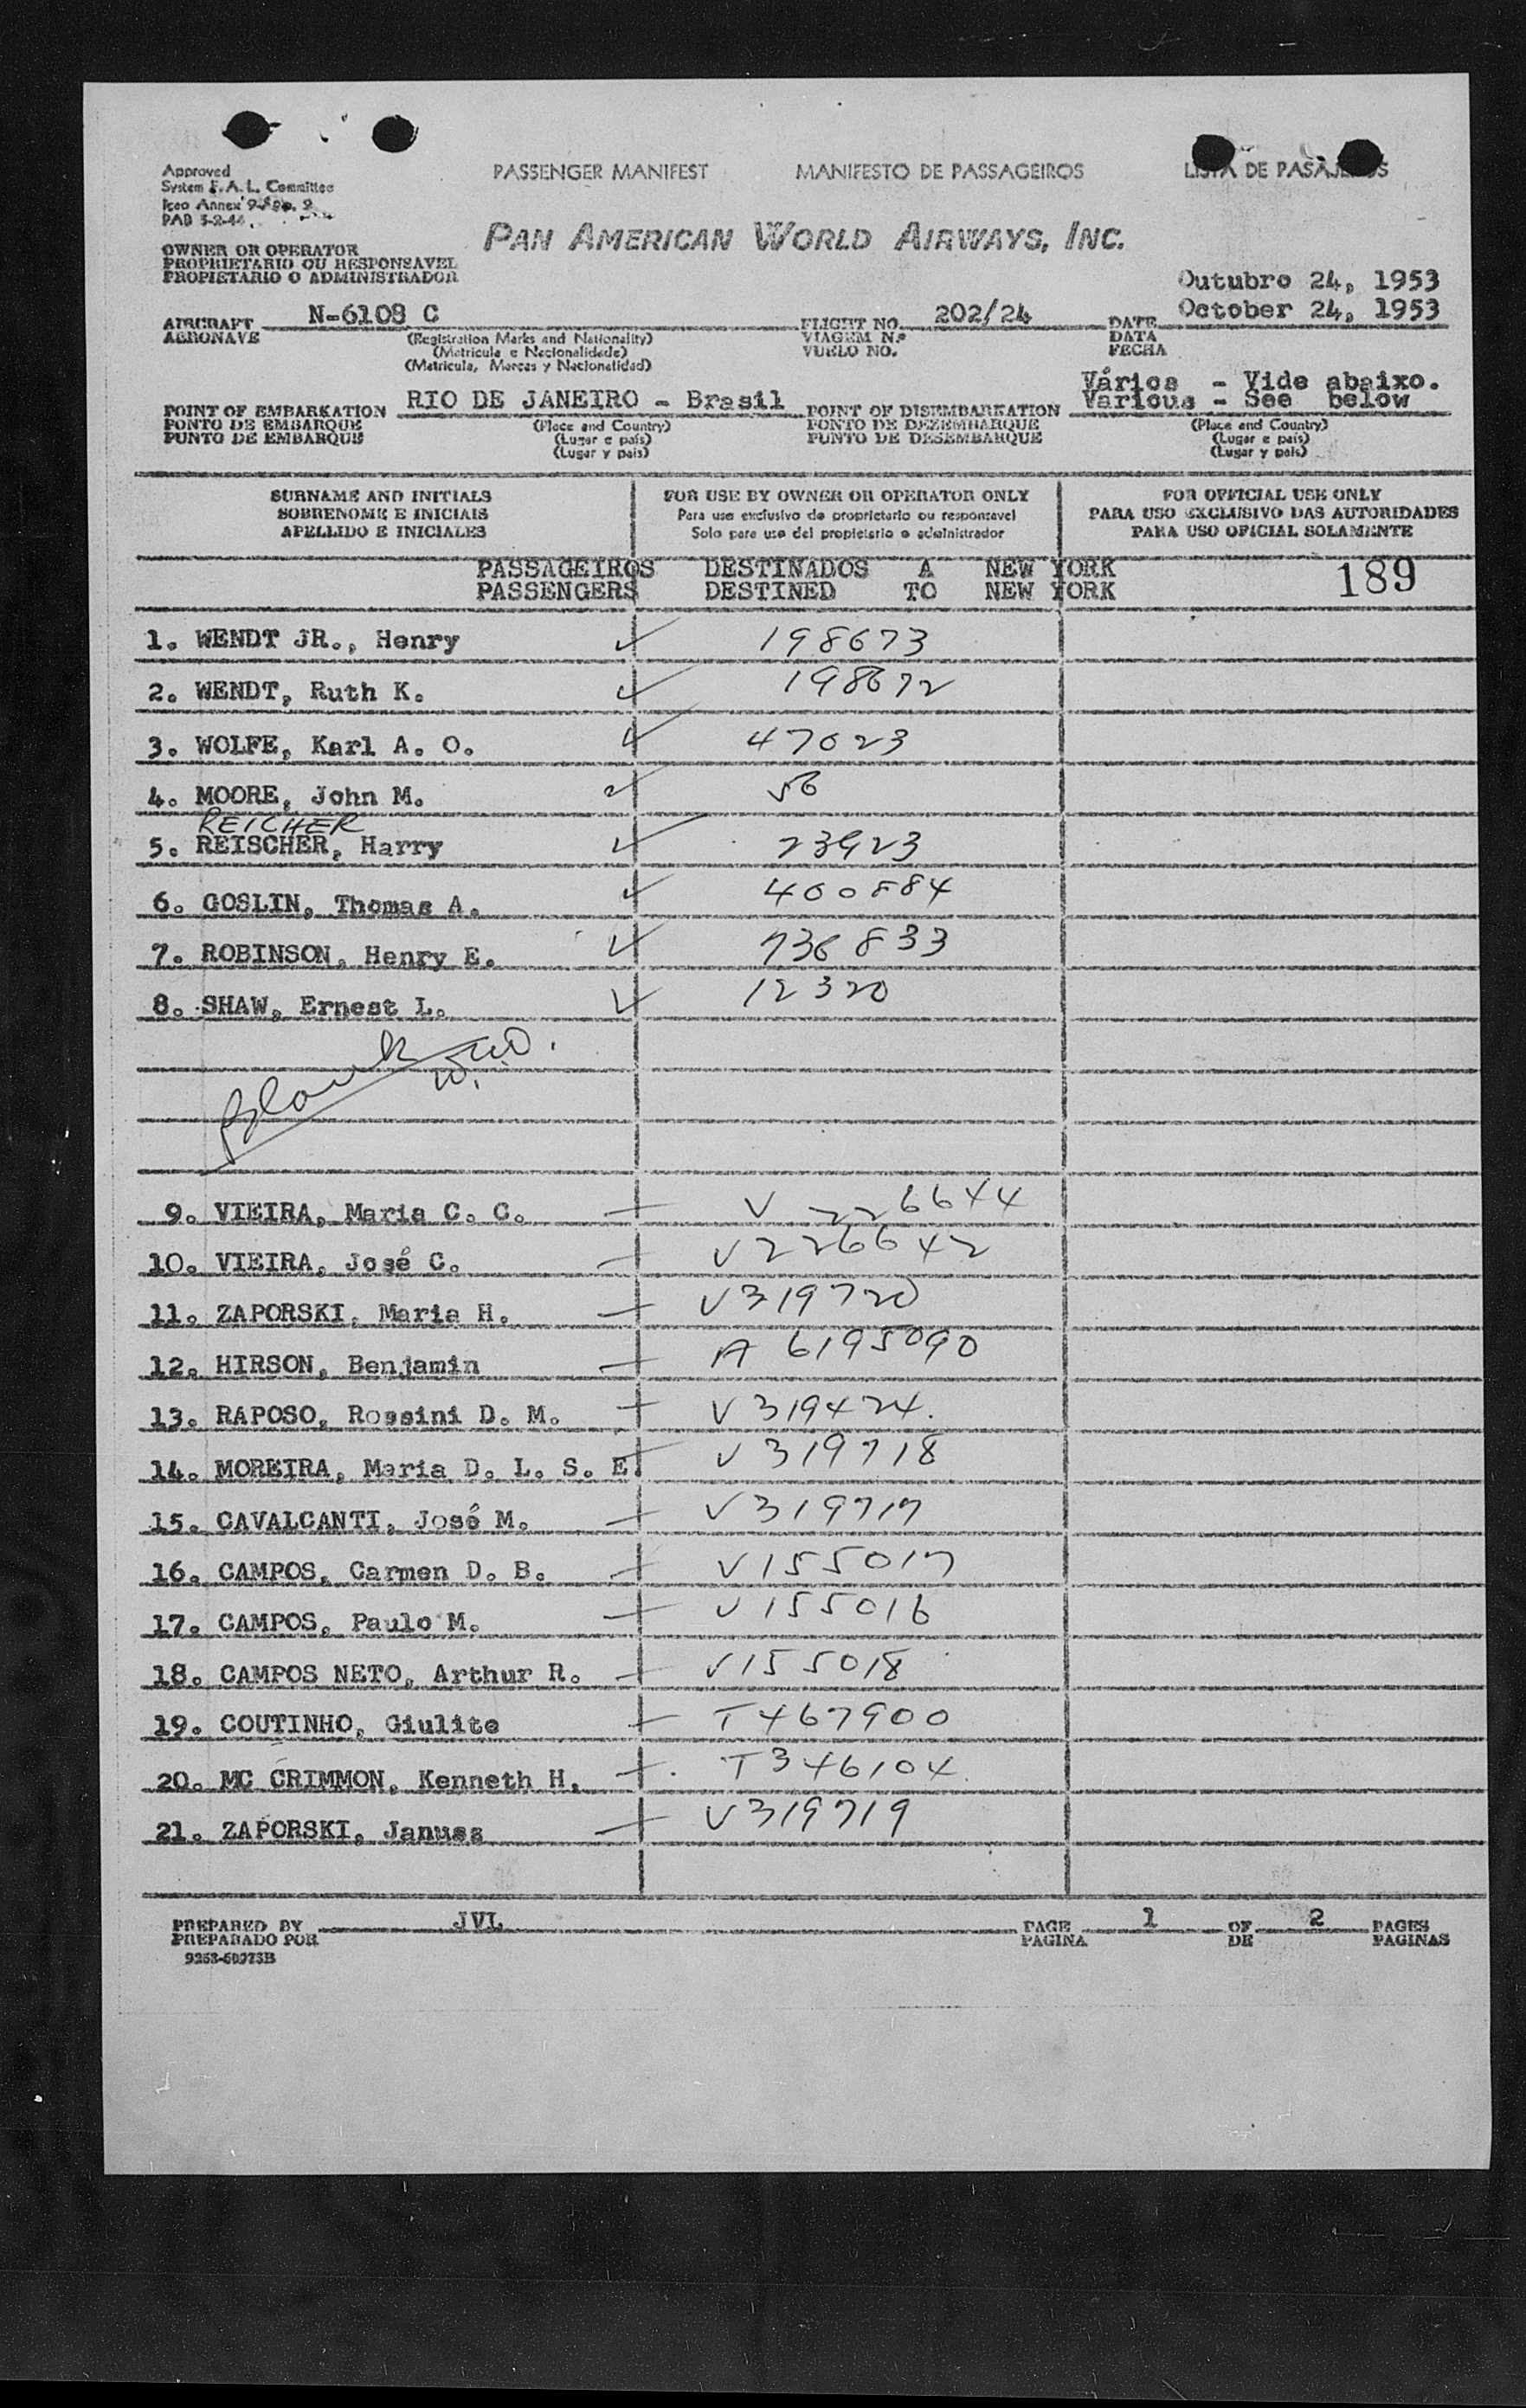 PASSENGER MANIFEST MANIFESTO DE PASSAGEIROS LISTA DE PASAJEROS
Approved
System F. A. L. Committee
Icao Annex 9-App. 2
PAB 5-2-44
PAN AMERICAN WORLD AIRWAYS, INC.
OWNER OR OPERATOR
PROPRIETARIO OU RESPONSAVEL
PROPIETARIO O ADMINISTRADOR
Outubro 24, 1953
AIRCRAFT N-6108 C FLIGHT NO. 202/24 DATE October 24, 1953
AERONAVE (Registration Marks and Nationality) VIAGEM N.º DATA
(Matricula e Nacionalidade) VUELO NO. FECHA
(Matricula, Marcas y Nacionalidad)
Vários - Vide abaixo.
POINT OF EMBARKATION RIO DE JANEIRO - Brasil POINT OF DISEMBARKATION Various - See below
PONTO DE EMBARQUE (Place and Country) PONTO DE DEZEMBARQUE (Place and Country)
PUNTO DE EMBARQUE (Lugar e país) PUNTO DE DESEMBARQUE (Lugar e país)
(Lugar y país) (Lugar y país)
SURNAME AND INITIALS FOR USE BY OWNER OR OPERATOR ONLY FOR OFFICIAL USE ONLY
SOBRENOME E INICIAIS Para uso exclusivo do proprietario ou responsavel PARA USO EXCLUSIVO DAS AUTORIDADES
APELLIDO E INICIALES Solo para uso del propietario o administrador PARA USO OFICIAL SOLAMENTE
PASSAGEIROS DESTINADOS A NEW YORK
PASSENGERS DESTINED TO NEW YORK 189
1. WENDT JR., Henry ✓ 198673
2. WENDT, Ruth K. ✓ 198672
3. WOLFE, Karl A. O. ✓ 47023
4. MOORE, John M. ✓ 56
REICHER
5. REISCHER, Harry ✓ 23923
6. GOSLIN, Thomas A. ✓ 400884
7. ROBINSON, Henry E. ✓ 736833
8. SHAW, Ernest L. ✓ 12320
Blank
9. VIEIRA, Maria C. C. V 226644
10. VIEIRA, José C. V226642
11. ZAPORSKI, Maria H. V319720
12. HIRSON, Benjamin A 6195090
13. RAPOSO, Rossini D. M. V319424.
14. MOREIRA, Maria D. L. S. E. V319718
15. CAVALCANTI, José M. V319717
16. CAMPOS, Carmen D. B. V155017
17. CAMPOS, Paulo M. V155016
18. CAMPOS NETO, Arthur R. V155018
19. COUTINHO, Giulite T467900
20. MC CRIMMON, Kenneth H. T346104
21. ZAPORSKI, Januss V319719
PREPARED BY JVL PAGE 1 OF 2 PAGES
PREPARADO POR PAGINA DE PAGINAS